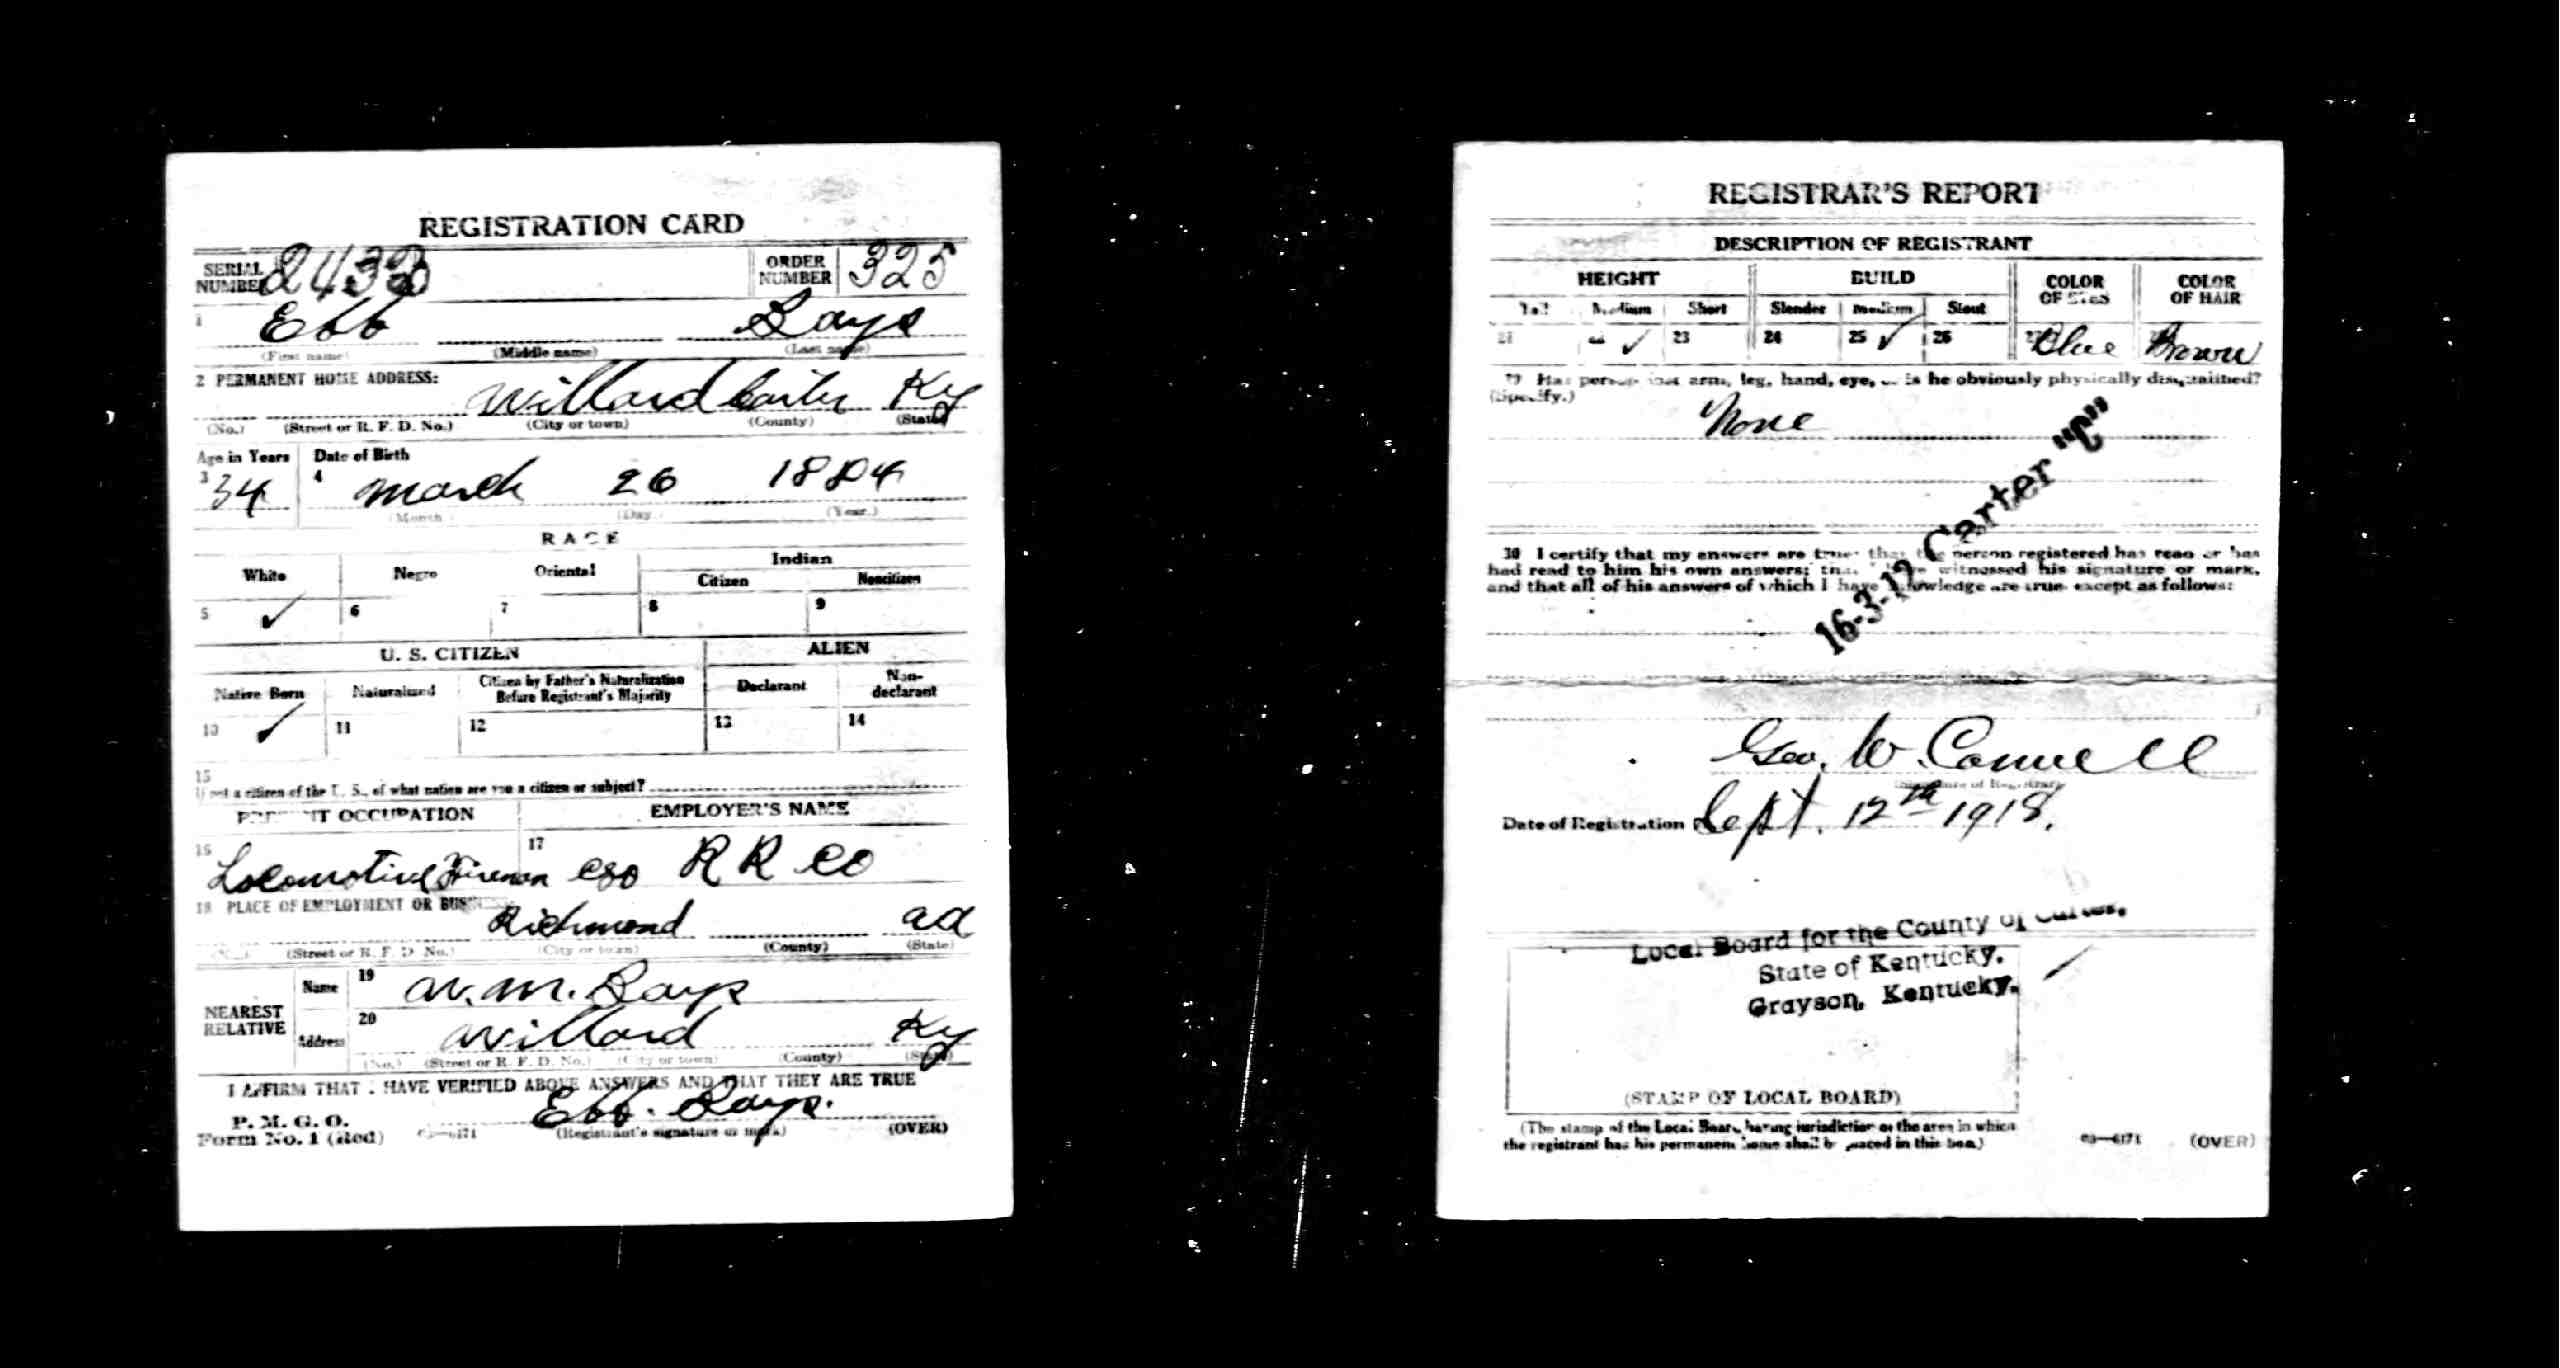 REGISTRATION CARD
SERIAL NUMBER 2433 ORDER NUMBER 325
1 Ebb Bays
(First name) (Middle name) (Last name)
2 PERMANENT HOME ADDRESS:
Willard Carter Ky
(No.) (Street or R. F. D. No.) (City or town) (County) (State)
Age in Years Date of Birth
3 34 4 March 26 1884
(Month) (Day.) (Year.)
RACE
White Negro Oriental Indian
Citizen Noncitizen
5 ✓ 6 7 8 9
U. S. CITIZEN ALIEN
Native Born Naturalized Citizen by Father's Naturalization Before Registrant's Majority Declarant Non-declarant
10 ✓ 11 12 13 14
15
If not a citizen of the U. S., of what nation are you a citizen or subject?
PRESENT OCCUPATION EMPLOYER'S NAME
16 Locomotive Fireman 17 C&O R R Co
18 PLACE OF EMPLOYMENT OR BUSINESS:
Richmond
(No.) (Street or R. F. D. No.) (City or town) (County) (State)
NEAREST RELATIVE
Name 19 W. M. Bays
Address 20 Willard Ky
(No.) (Street or R. F. D. No.) (City or town) (County) (State)
I AFFIRM THAT I HAVE VERIFIED ABOVE ANSWERS AND THAT THEY ARE TRUE
P. M. G. O.
Form No. 1 (Red) 03—6171 Ebb. Bays.
(Registrant's signature or mark) (OVER)
REGISTRAR'S REPORT
DESCRIPTION OF REGISTRANT
HEIGHT BUILD COLOR OF EYES COLOR OF HAIR
Tall Medium Short Slender Medium Stout
21 22 ✓ 23 24 25 ✓ 26 27 Blue 28 Brown
29 Has person lost arm, leg, hand, eye, or is he obviously physically disqualified?
(Specify.) None
16-3-12 Carter "C"
30 I certify that my answers are true; that the person registered has read or has
had read to him his own answers; that I have witnessed his signature or mark,
and that all of his answers of which I have knowledge are true, except as follows:
Geo. W. Connell
(Signature of Registrar)
Date of Registration Sept. 12th 1918.
Local Board for the County of Carter,
State of Kentucky,
Grayson, Kentucky.
(STAMP OF LOCAL BOARD)
(The stamp of the Local Board having jurisdiction of the area in which
the registrant has his permanent home shall be placed in this box.)
03—6171 (OVER)